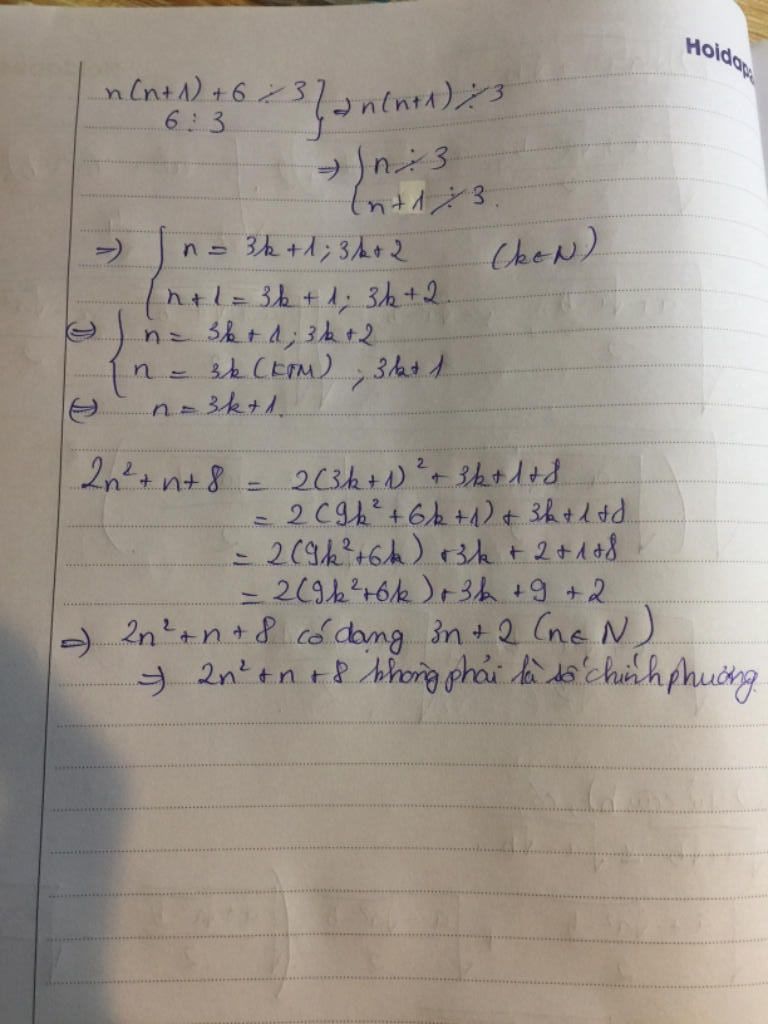 Hoidap
n(n+1) + 6 ⋮̸ 3 } ⇒ n(n+1) ⋮̸ 3
6 ⋮ 3
⇒ { n ⋮̸ 3
n+1 ⋮̸ 3.
⇒ { n = 3k+1; 3k+2 (k∈N)
n+1 = 3k+1; 3k+2.
⇔ { n = 3k+1; 3k+2
n = 3k (KTM) ; 3k+1
⇔ n = 3k+1.
2n² + n + 8 = 2(3k+1)² + 3k+1+8
= 2(9k² + 6k+1) + 3k+1+8
= 2(9k²+6k) + 3k + 2+1+8
= 2(9k²+6k)+3k +9 +2
⇒ 2n² + n + 8 có dạng 3n + 2 (n∈N)
⇒ 2n² + n + 8 không phải là số chính phương.